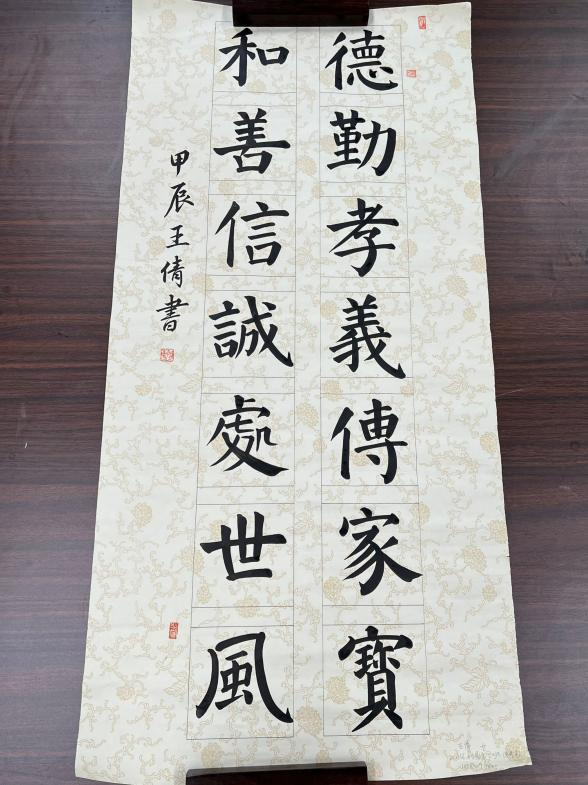 德勤孝義傳家寶
和善信誠處世風
甲辰王倩書